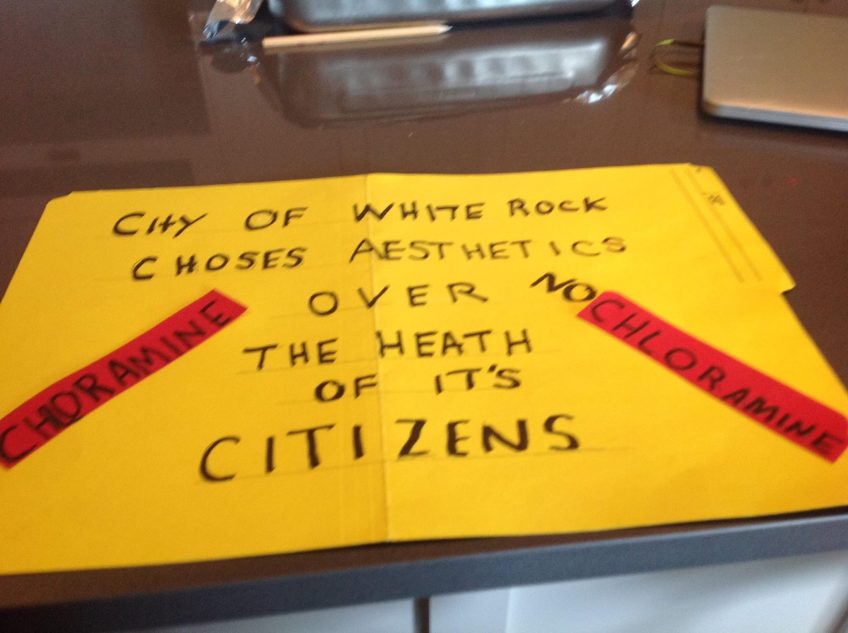 CITY OF WHITE ROCK
CHOSES AESTHETICS
OVER
THE HEATH
OF IT'S
CITIZENS
CHORAMINE
NO CHLORAMINE